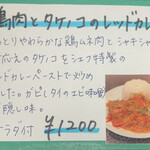 鶏肉とタケノコのレッドカレ
っとりやわらかな鶏ムネ肉とシャキシャ
応えのタケノコをシェフ特製の
ッドカレーペーストで炒め
した。ガピ(タイのエビ味噌
隠し味。
ラダ付 ¥1200